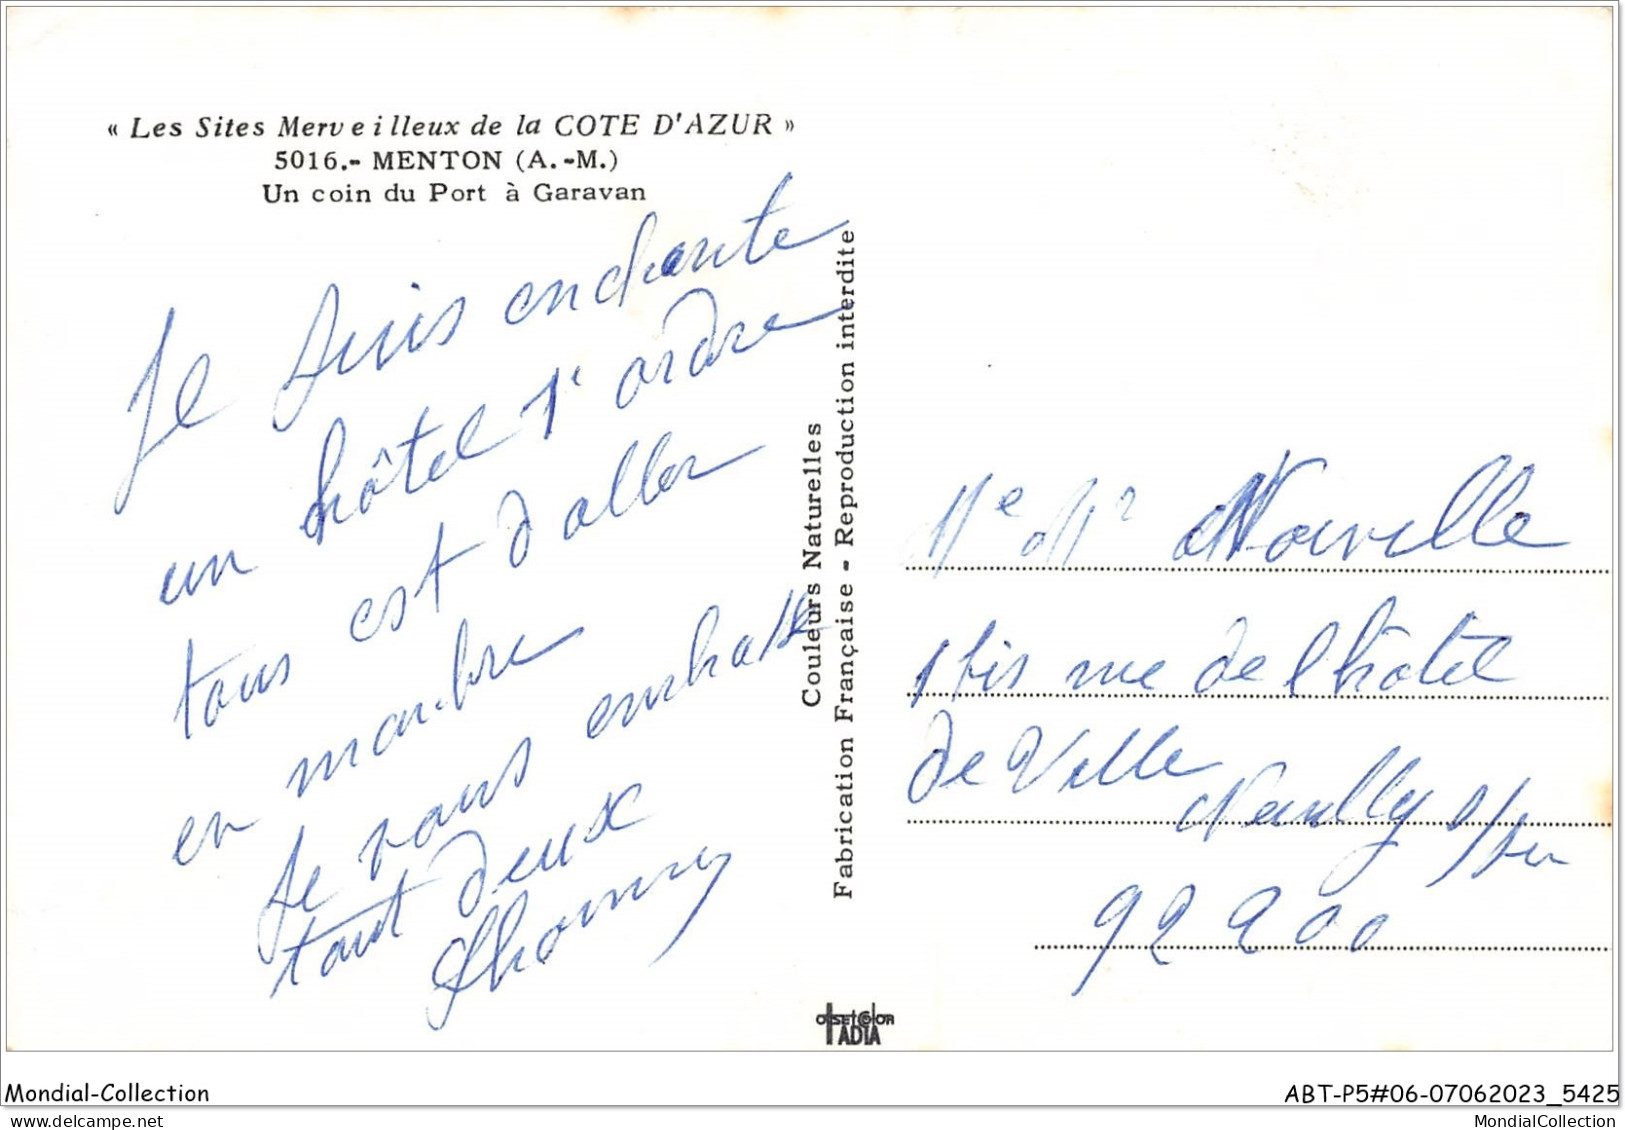 « Les Sites Merveilleux de la COTE D'AZUR »
5016.- MENTON (A.-M.)
Un coin du Port à Garavan
Je suis enchante
un hôtel 1r ordre
tous est d aller
en marbre
Je vous embrasse
tout deux
Couleurs Naturelles
Fabrication Française - Reproduction interdite
Me Mr
1 bis rue de l hôtel
de Ville
Neuilly s/Sei
92200
OFFSET COLOR
TADIA
Mondial-Collection
ABT-P5#06-07062023_5425
MondialCollection